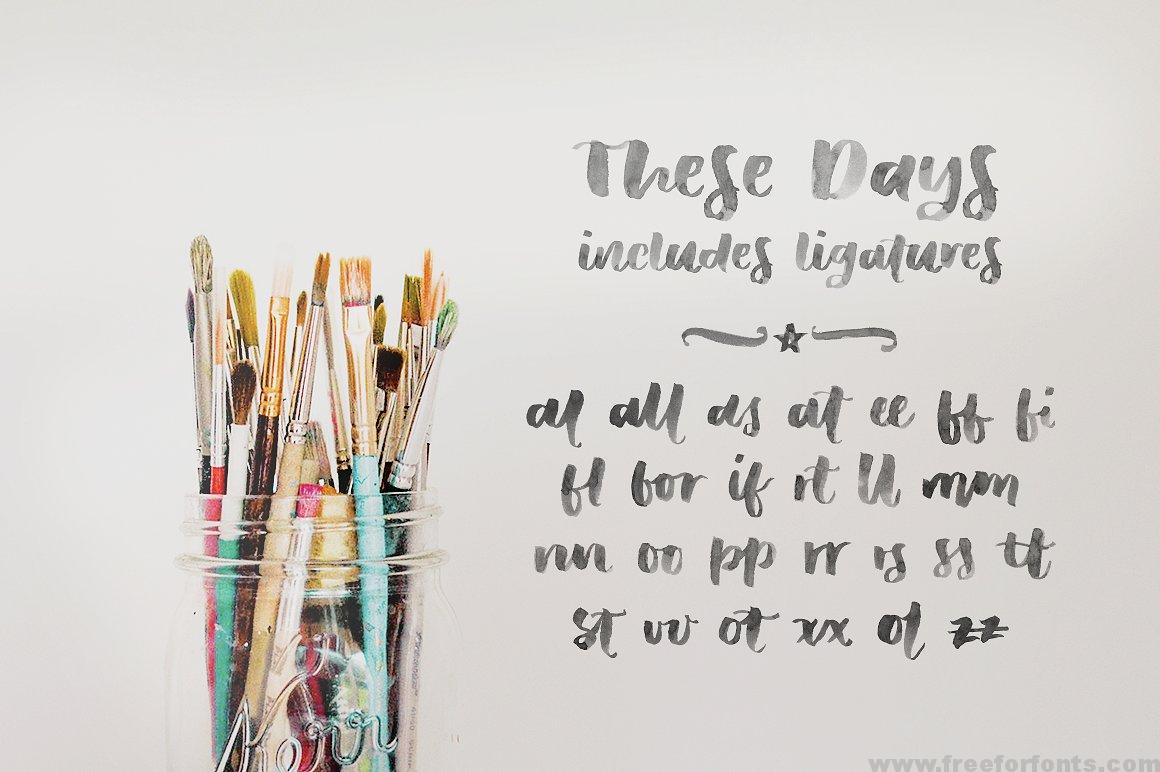 These Days
includes ligatures
al all as at ee ff fi
fl for if rt ll mm
nn oo pp rr is ss tf
st vv ot xx ol zz
www.freeforfonts.com